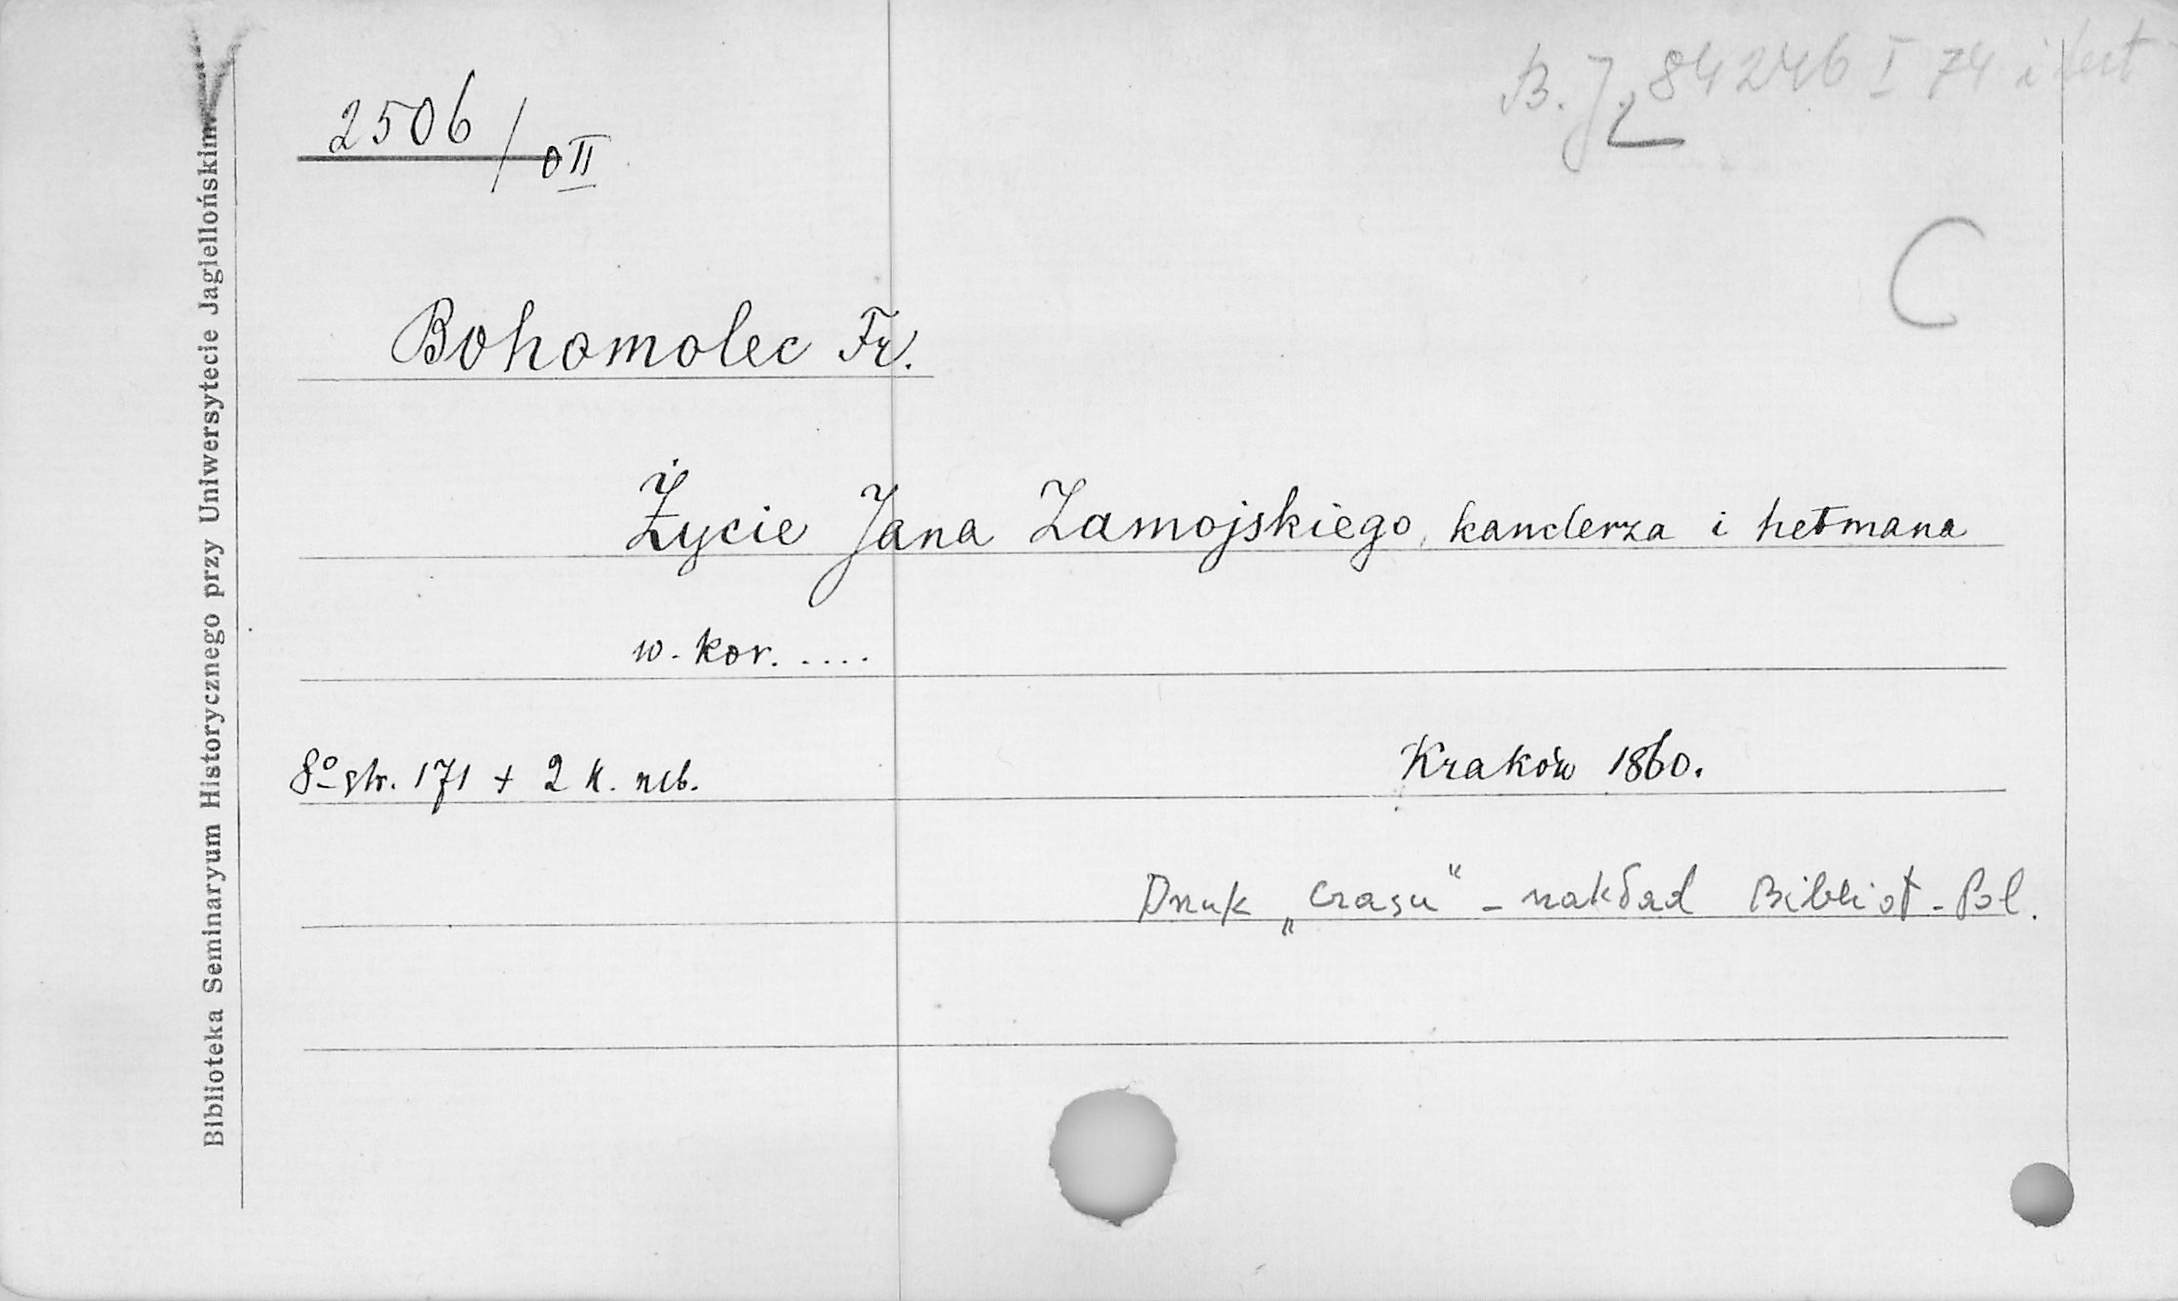 B. J. 84246 I 74 i
2506/0II
C
Bohomolec Fr.
Życie Jana Zamojskiego, kanclerza i hetmana
w. kor. ....
8° str. 171 + 2 k. nlb.
Kraków 1860.
Druk „Czasu" - nakład Bibliot. Pol.
Biblioteka Seminaryum Historycznego przy Uniwersytecie Jagiellońskim.